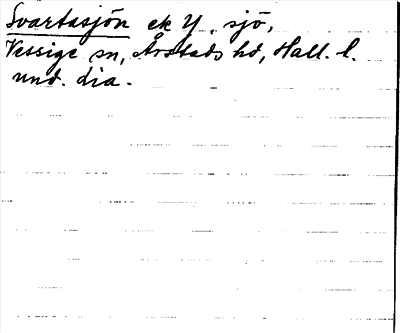 Svartasjön ek Y, sjö,
Vessige sn, Årstads hd, Hall. l.
und. dia.